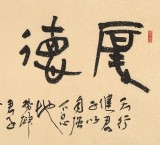 厚德
天行
健君
子以
自强
不息
地
势坤
君子